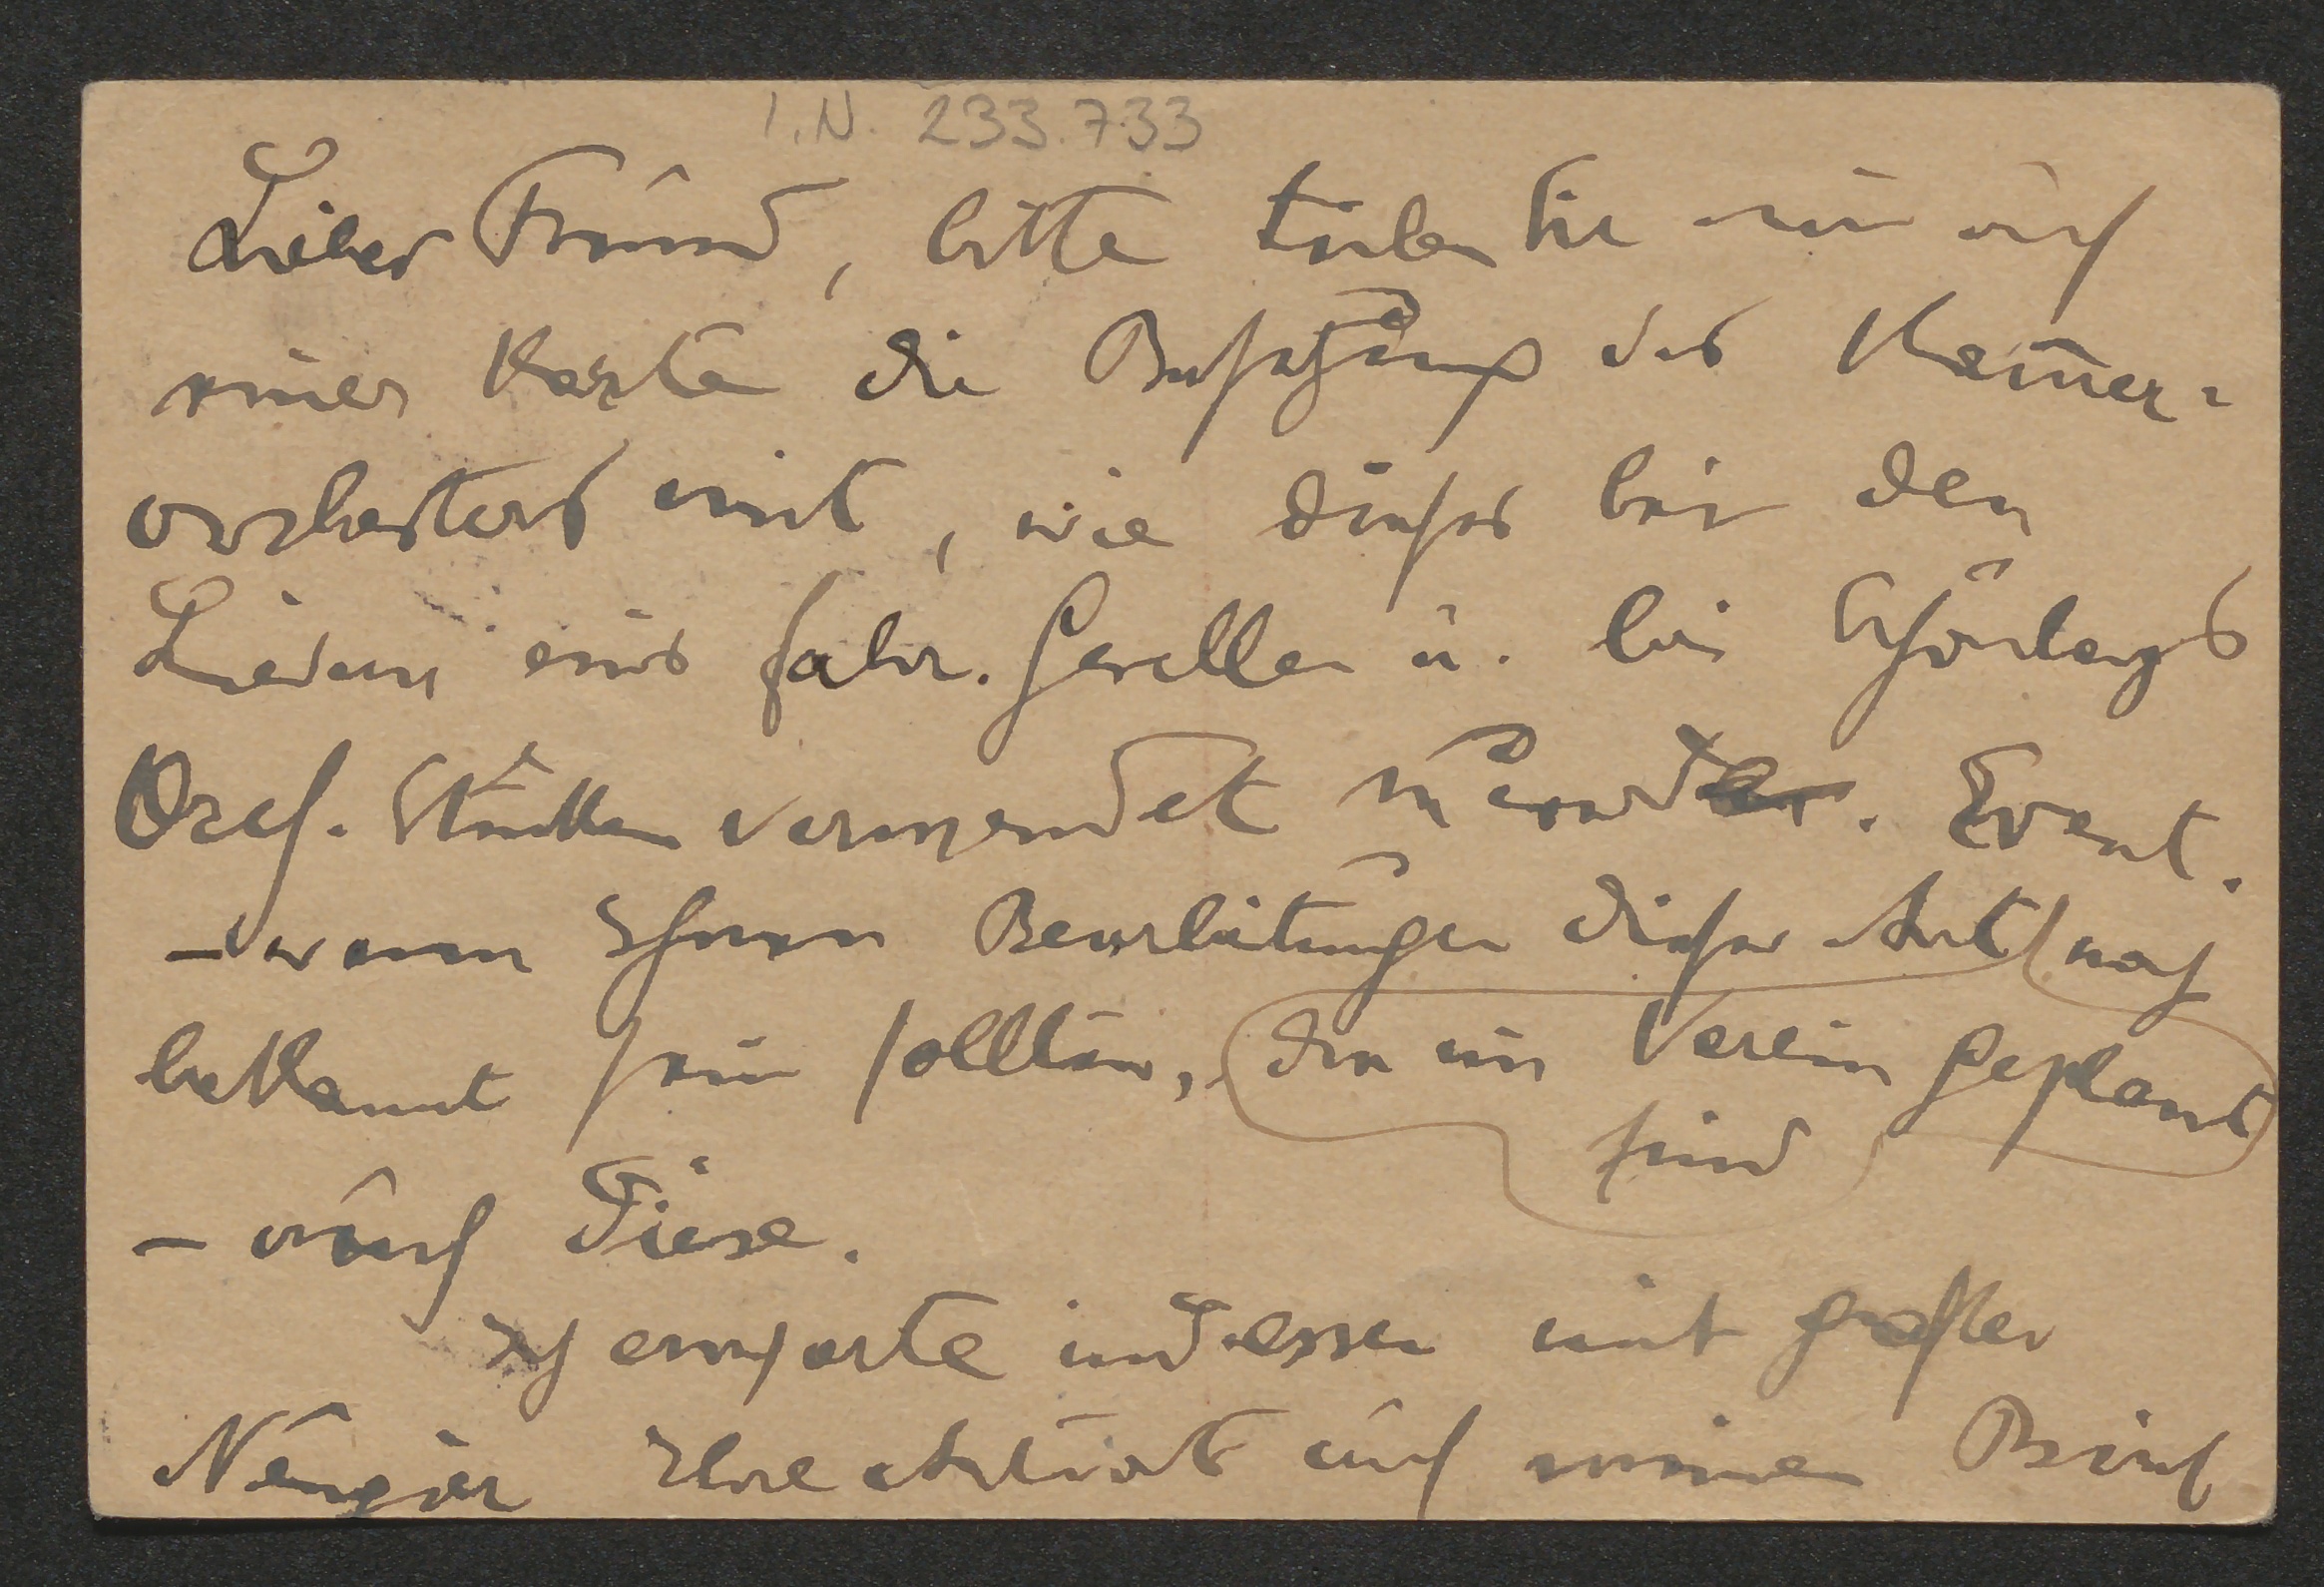 I.N. 233.733
Lieber Freund, bitte teilen Sie mir auf
einer Karte die Besetzung des Kam̅er-
orchesters mit, wie dieses bei den
Liedern eines fahr. Gesellen u. bei Schönbergs
Orch. Stücken verwendet wurde. Event.
– wenn Ihnen Bearbeitungen dieser Art noch
bekannt sein sollten, die im Verein geplant
sind
– auch diese.
Ich erwarte indessen mit großer
Neugier Ihre Antwort auf meinen Brief